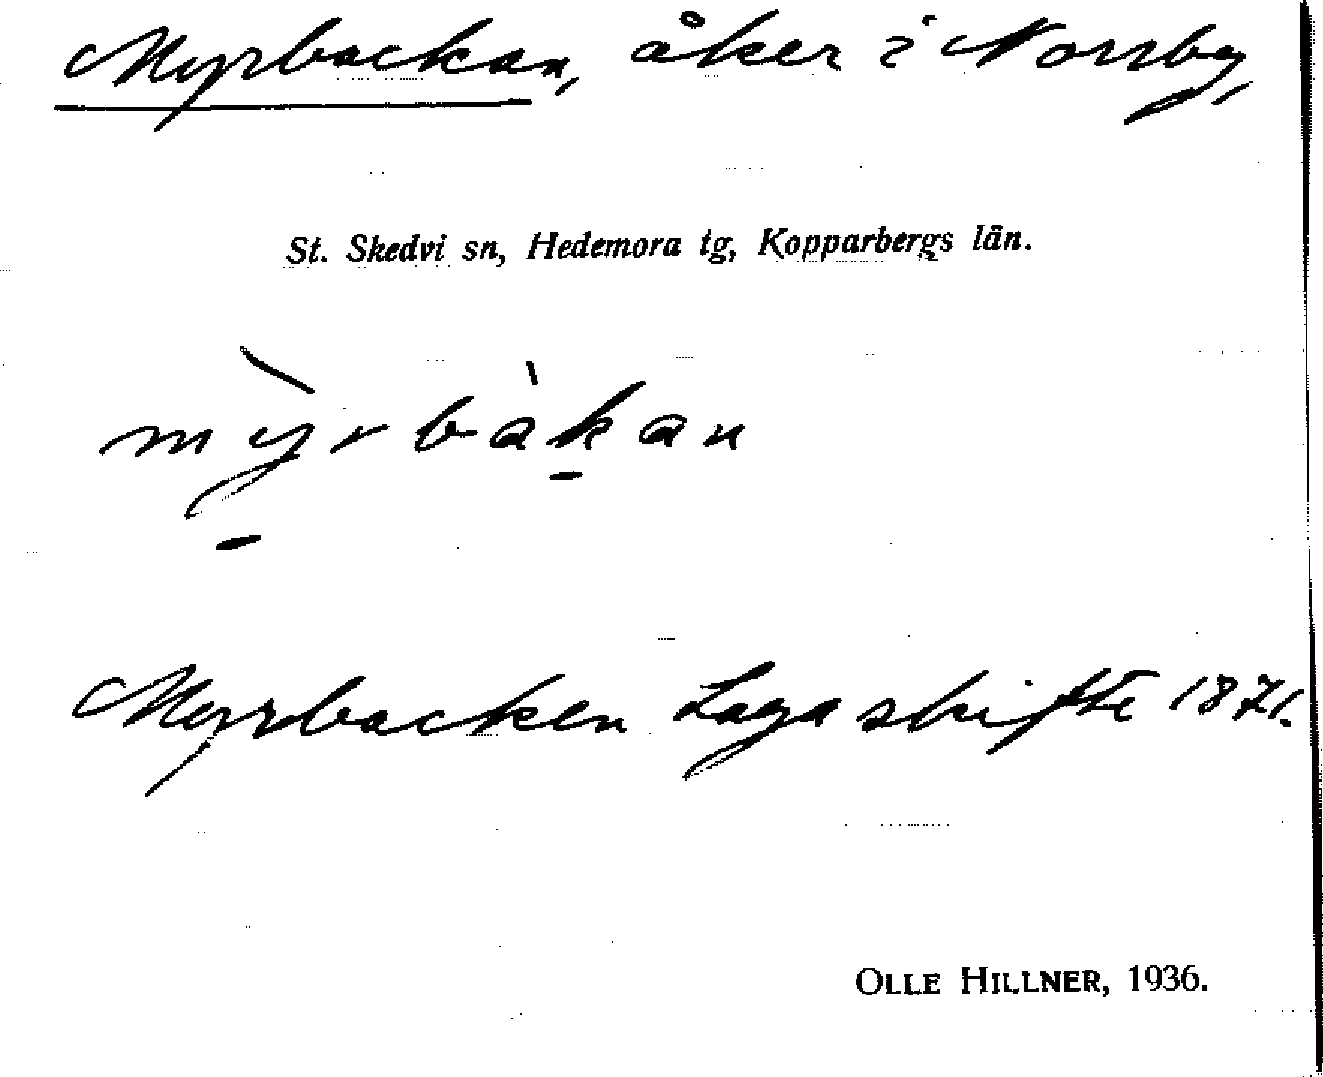 Myrbackan, åker i Norrby,
St. Skedvi sn, Hedemora tg, Kopparbergs län.
mỳ̱rbàḵan
Myrbacken Laga skifte 1871.
OLLE HILLNER, 1936.